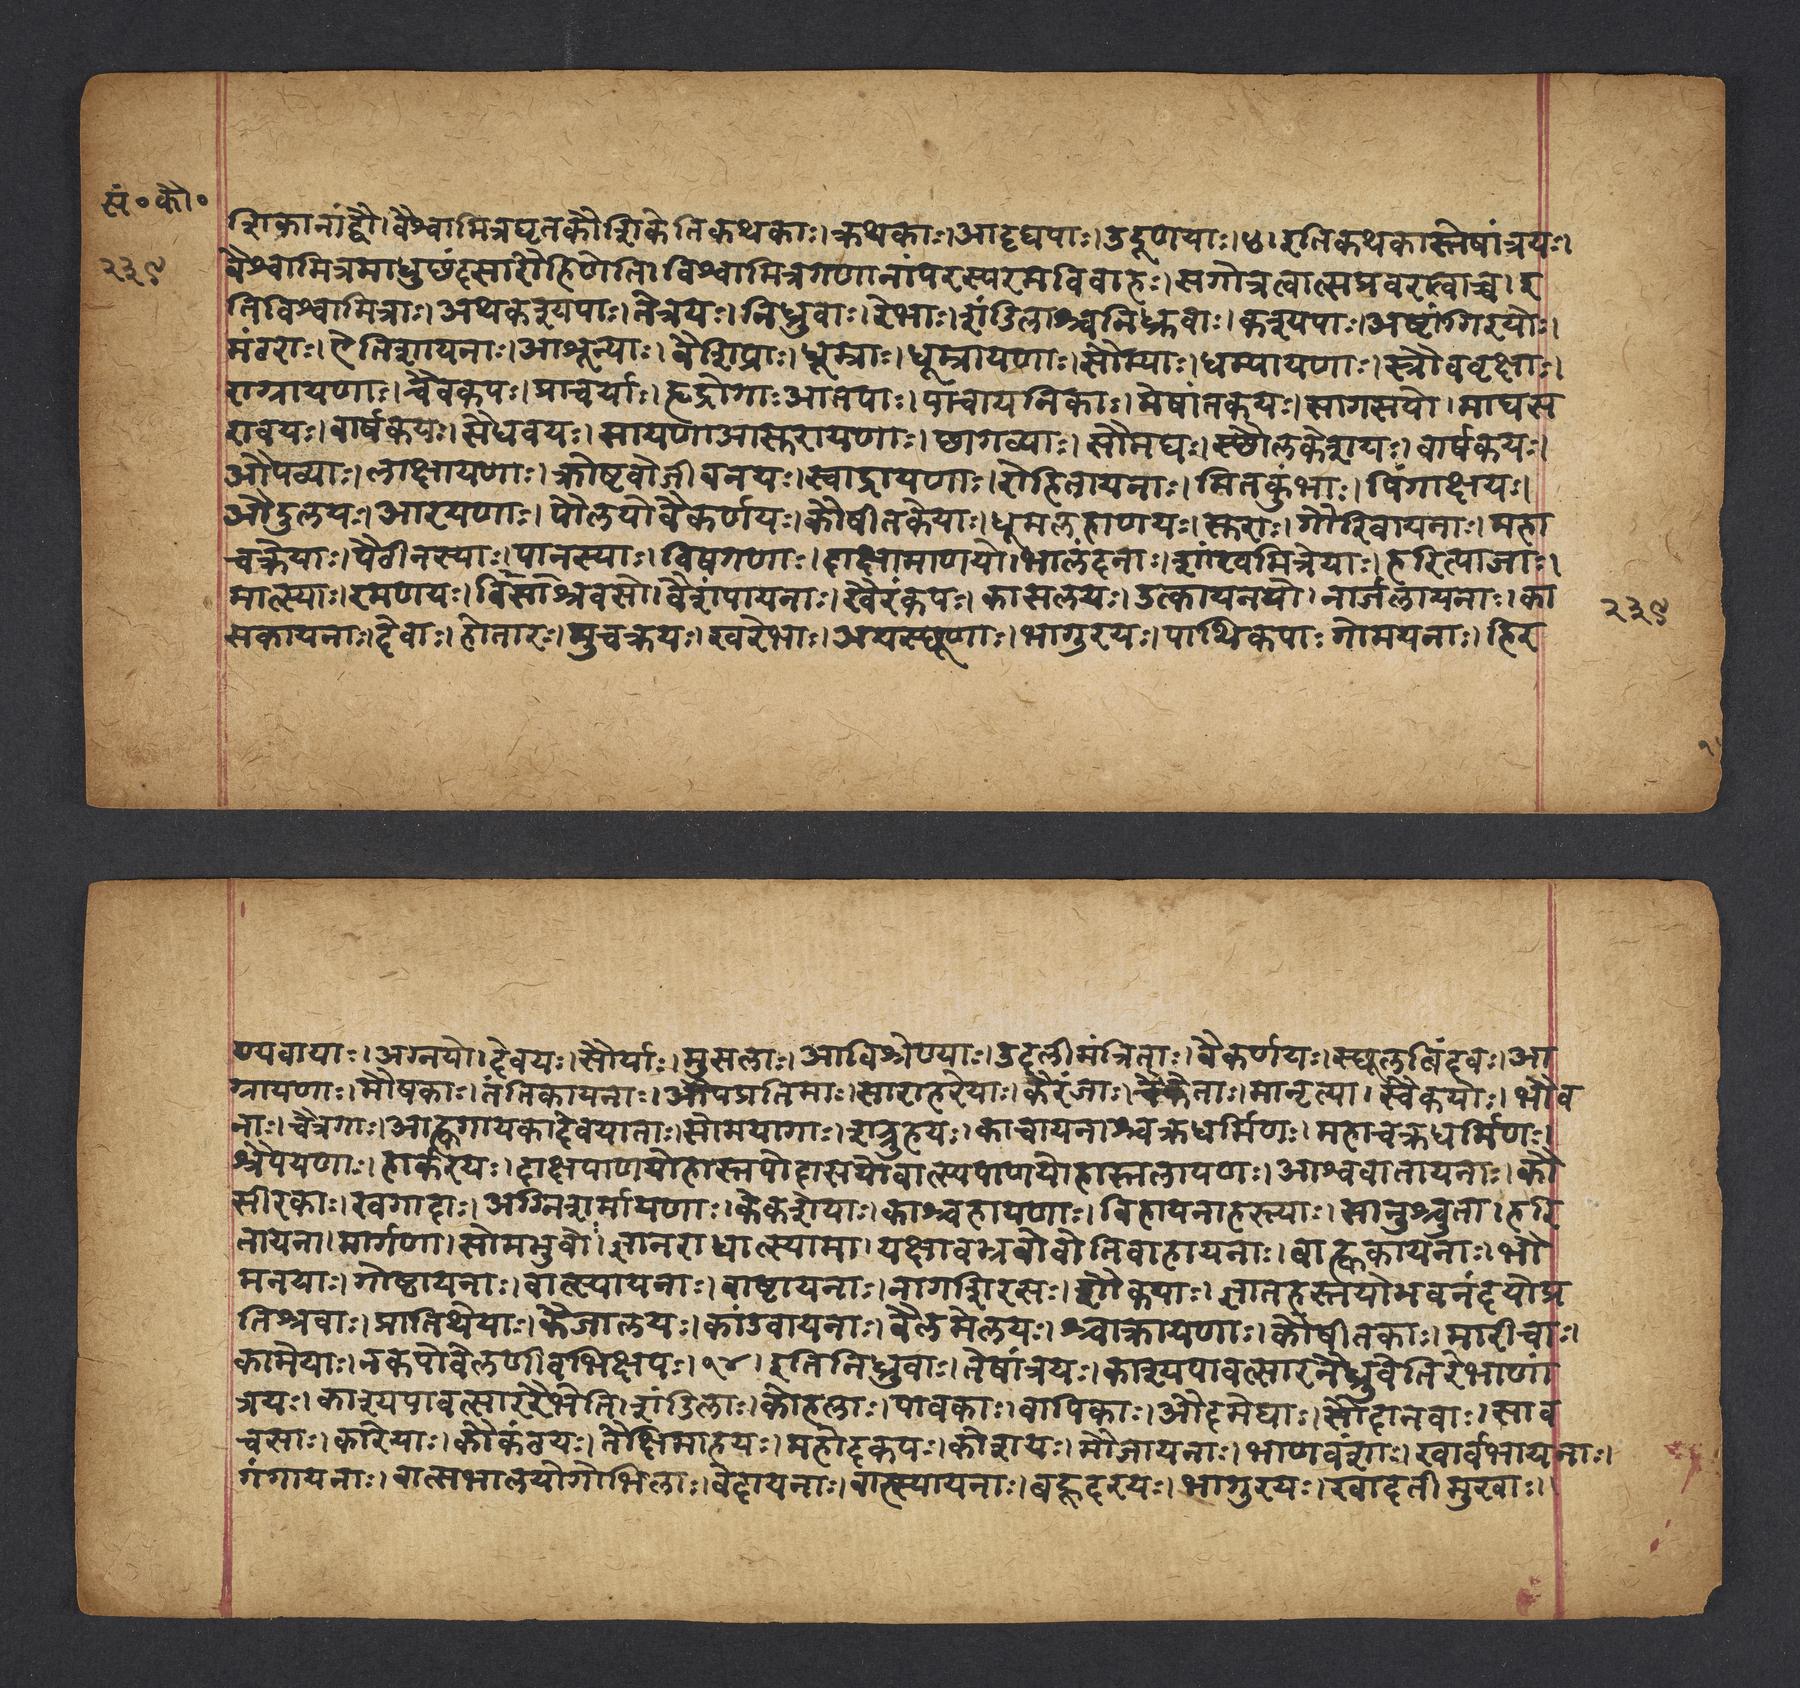 सं॰कौ॰
२३९
शिकानांद्वौ।वैश्वामित्रघृतकौशिकेतिकथकाः।क्रथकाः।आदृघपाः।उदूणयाः।४।इतिकथकास्तेषांत्रयः।
वैश्वामित्रमाधुछंदसारौहिणेति।विश्वामित्रगणानांपरस्परमविवाहः।सगोत्रत्वात्सप्रवरत्वाच्च।इ
तिविश्वामित्राः।अथकश्यपाः।तेत्रयः।निध्रुवाः।रेभाः।शांडिलाश्चनिध्रुवाः।कश्यपाः।अष्टांगिरयोः।
मंवराः।ऐतिशायनाः।आभून्याः।वैशिप्राः।धूम्राः।धूम्रायणाः।सौम्याः।धम्यायणाः।स्त्रौववृक्षाः।
राग्नायणाः।न्वैवकपः।प्राचर्याः।हृद्रोगाःआतपाः।पांचायनिकाः।मेषांतकयः।सागसयो।माघस
रावयः।वार्षकयः।सैधवयः।सायणाआस्तरायणाः।छागव्याः।सौमघः।स्छौलकेशयः।वार्षकयः।
औपव्याः।लाक्षायणाः।क्रोष्टवोजीवनयः।स्वाद्रायणाः।रोहितायनाः।मितकुंभाः।पिंगाक्षयः।
औदुलयः।आरयणाः।पौलयोवैकर्णयः।कौषीतकेयाः।धूमलहाणयः।स्तराः।गौरिवायनाः।महा
चक्रेयाः।पैवीनस्याः।पानस्याः।विषगणाः।दाक्षामाणयो।भालंदनाः।शांखमित्रेयाः।हरित्याजाः।
मात्स्याः।रमणयः।विसोश्रवसो।वैशंपायनाः।खैरंकपः।कासलयः।उत्कायनयो।नार्जलायनाः।का
सकायनाः।देवाः।होतारः।सुचक्रयः।खरेभाः।अयस्थूणाः।भागुरयः।पाथिकपाःगोमयनाः।हिर
२३९
ण्यवायाः।अग्नयो।देवयः।सौर्याः।मुसलाः।आविश्रेण्याः।उदलीमंत्रिताः।वैकर्णयः।स्थूलबिंदवः।आ
ग्नायणाः।मौषकाः।तंतिकायनाः।औपप्रतिमाः।साराहरेयाः।कैरंजाः।कैकेनाः।मानृत्या।स्वैकयोः।भौव
नाः।चैत्रगाः।आह्नगायकादेवयाताः।सोमयागाः।शत्रुहयः।काचायनाश्चक्रधर्मिणः।महाचक्रधर्मिणः।
श्रेपयणाः।हार्करेयः।दाक्षपाणयोहास्तपोदासयोवात्स्यपाणयोहास्तलायणः।आश्ववातायनाः।कौ
सीरकाः।खगादाः।अग्निशर्मायणाः।कैकशेयाः।काश्चहायणाः।विहायनाहस्त्याः।सानुश्चुता।हरि
तायना।मार्गणा।सोमभुवो।ज्ञानराधात्स्यामा।यक्षावभ्रवोवोतिवाहायनाः।वाह्लकायनाः।भौ
मनयाः।गोष्ठायनाः।वात्स्यायनाः।वाष्टायनाः।नागशिरसः।शौकपाः।ज्ञातहर्स्तयोभवनंदयोप्र
तिश्रवाः।प्रातिथेयाः।कैजालयः।कांडवायनाः।वैलमैलयः।श्वाक्रायणाः।कौषीतकाः।मारीचाः।
कामेयाः।नकपोवैलणीवभिक्षपः।९४।इतिनिध्रुवाः।तेषांत्रयः।काश्यपावत्सारनैध्रुवेतिरेभाणां
त्रयः।काश्यपावत्साररैभेति।शांडिलाः।कोहलाः।पावकाः।वापिकाः।औदमेघाः।सौदानवाः।साव
चसाः।करियाः।कौकंवयः।तौक्षिमाहयः।महोदकपः।कोशयः।मौजायनाः।भाणवंशाः।खार्वभायनाः।
गंगायनाः।वात्सभालयोगोभिलाः।वेदायनाः।वात्स्यायनाः।बहूदरयः।भागुरयः।खादतीमुखाः।